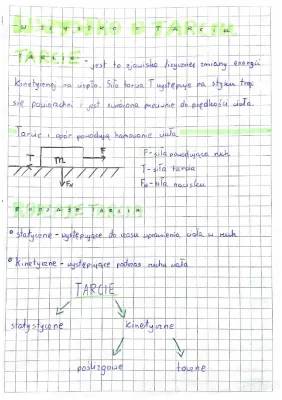 WSZYSTKO O TARCIU
TARCIE - jest to zjawisko fizyczne zmiany energii
kinetycznej na ciepło. Siła tarcia T występuje na styku trą
się powierzchni i jest zwrócona przeciwnie do prędkości ciała.
Tarcie i opór powodują hamowanie ciała
T m F
FN
F - siła powodująca ruch
T - siła tarcia
FN - siła nacisku
RODZAJE TARCIA
statyczne - występujące do czasu wprawienia ciała w ruch
kinetyczne - występujące podczas ruchu ciała
TARCIE
statystyczne kinetyczne
poślizgowe toczne